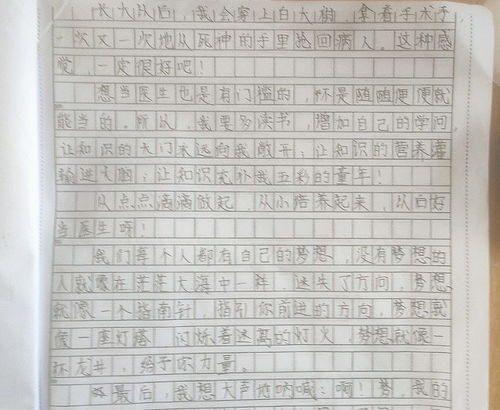 长大以后，我会穿上白大褂，拿着手术
一次又一次地从死神的手里抢回病人。这种感
觉，一定很好吧！
想当医生也是有门槛的，不是随随便便就
能当的。所以，我要多读书，增加自己的学问
让知识的大门永远向我敞开；让知识的营养灌
输进大脑；让知识充补我五彩的童年！
从点点滴滴做起，从小培养起来，从白
当医生呀！
我们每个人都有自己的梦想，没有梦想的
人就像在茫茫大海中一样，迷失了方向，梦想
就像一个指南针，指引你前进的方向，梦想就
像一座灯塔，闪烁着的灯火，梦想就像一
杯龙井，给予你力量。
最后，我想大声地呐喊：啊！梦，我的